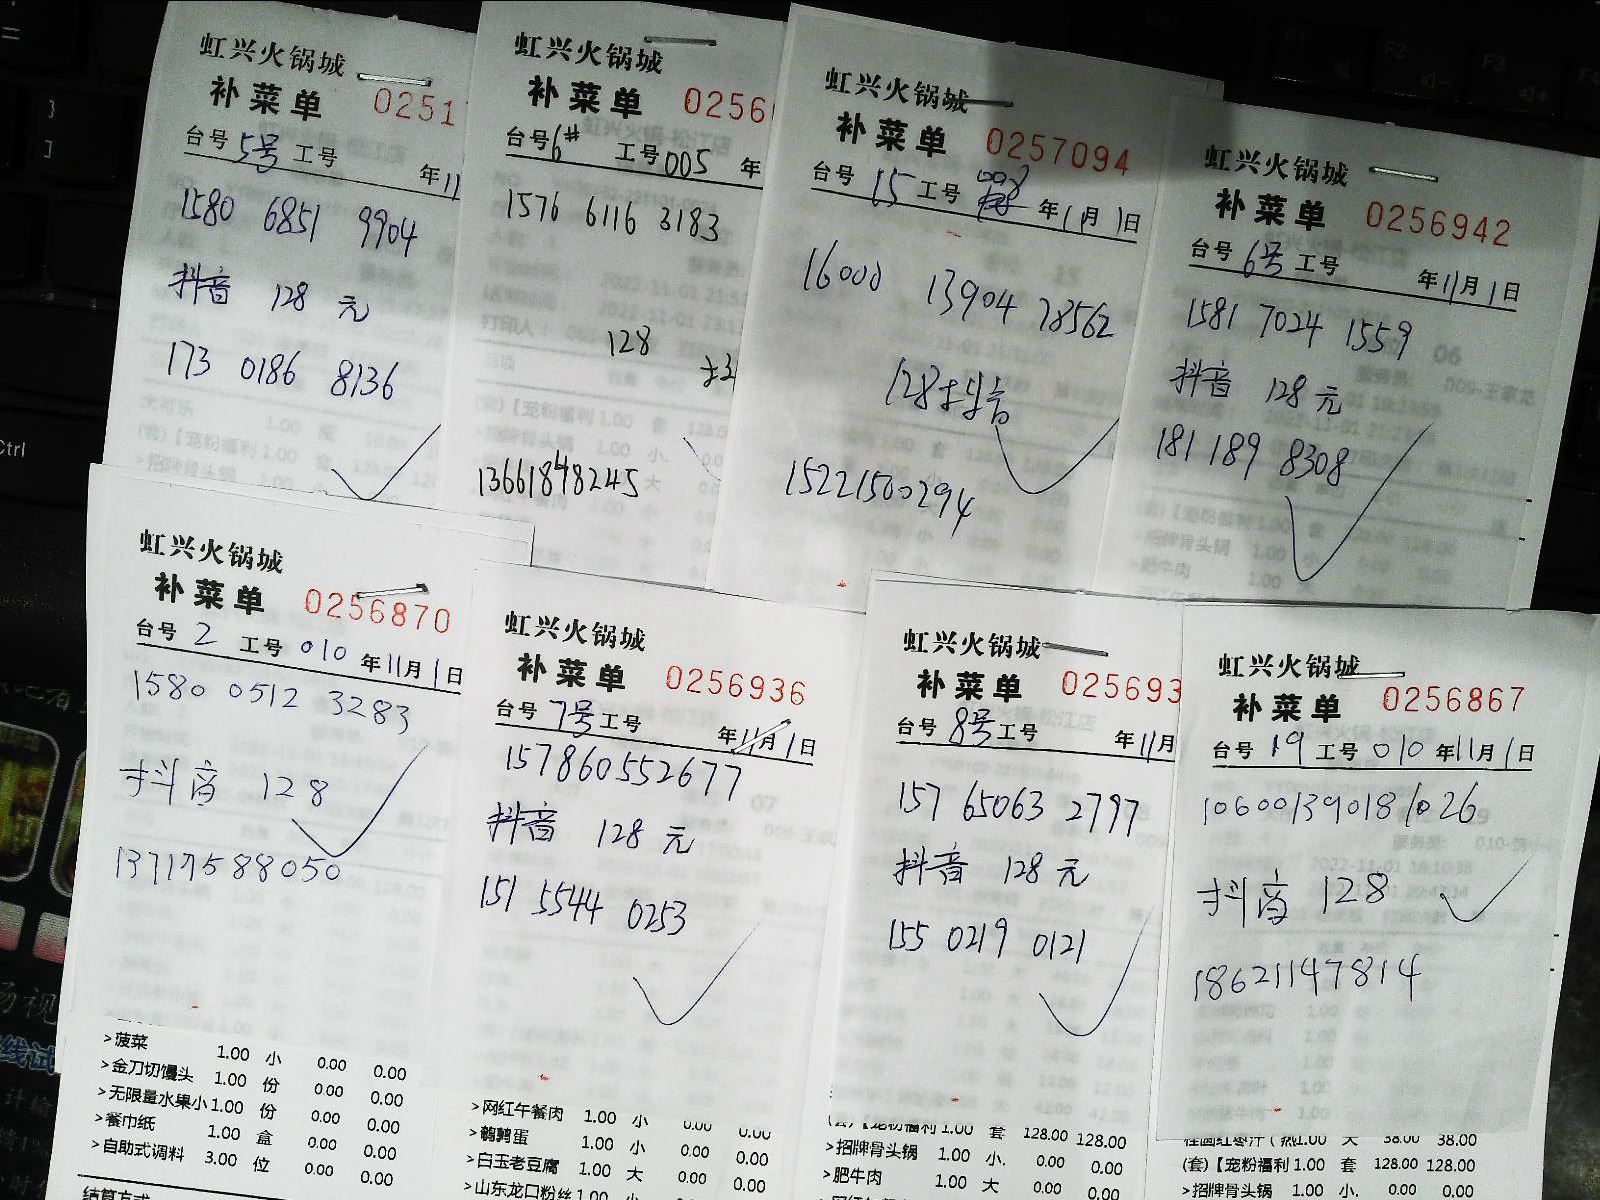 虹兴火锅城
补菜单 0251
台号 5号 工号 年11
1580 6851 9904
抖音 128 元
173 0186 8136
虹兴火锅城
补菜单 0256
台号 6# 工号 005 年
1576 6116 3183
128
13661848245
虹兴火锅城
补菜单 0257094
台号 15 工号 008 年11月1日
16000 13904 78562
128抖音
15221500294
虹兴火锅城
补菜单 0256942
台号 6号 工号 年11月1日
1581 7024 1559
抖音 128 元
181 189 8308
虹兴火锅城
补菜单 0256870
台号 2 工号 010 年11月1日
1580 0512 3283
抖音 128
13717588050
>菠菜 1.00 小 0.00 0.00
>金刀切馒头 1.00 份 0.00 0.00
>无限量水果小 1.00 份 0.00 0.00
>餐巾纸 1.00 盒 0.00 0.00
>自助式调料 3.00 位 0.00 0.00
结算方式
虹兴火锅城
补菜单 0256936
台号 7号 工号 年11月1日
157860552677
抖音 128 元
151 5544 0253
>网红午餐肉 1.00 小 0.00 0.00
>鹌鹑蛋 1.00 小 0.00 0.00
>白玉老豆腐 1.00 大 0.00 0.00
>山东龙口粉丝 1.00 小 0.00
虹兴火锅城
补菜单 025693
台号 8号 工号 年11月
157 65063 2797
抖音 128 元
155 0219 0121
(套)【宠粉福利 1.00 套 128.00 128.00
>招牌骨头锅 1.00 小. 0.00 0.00
>肥牛肉 1.00 大 0.00 0.00
虹兴火锅城
补菜单 0256867
台号 19 工号 010 年11月1日
10600139018 1026
抖音 128
18621147814
桂圆红枣汁(热 1.00 大 38.00 38.00
(套)【宠粉福利 1.00 套 128.00 128.00
>招牌骨头锅 1.00 小. 0.00 0.00